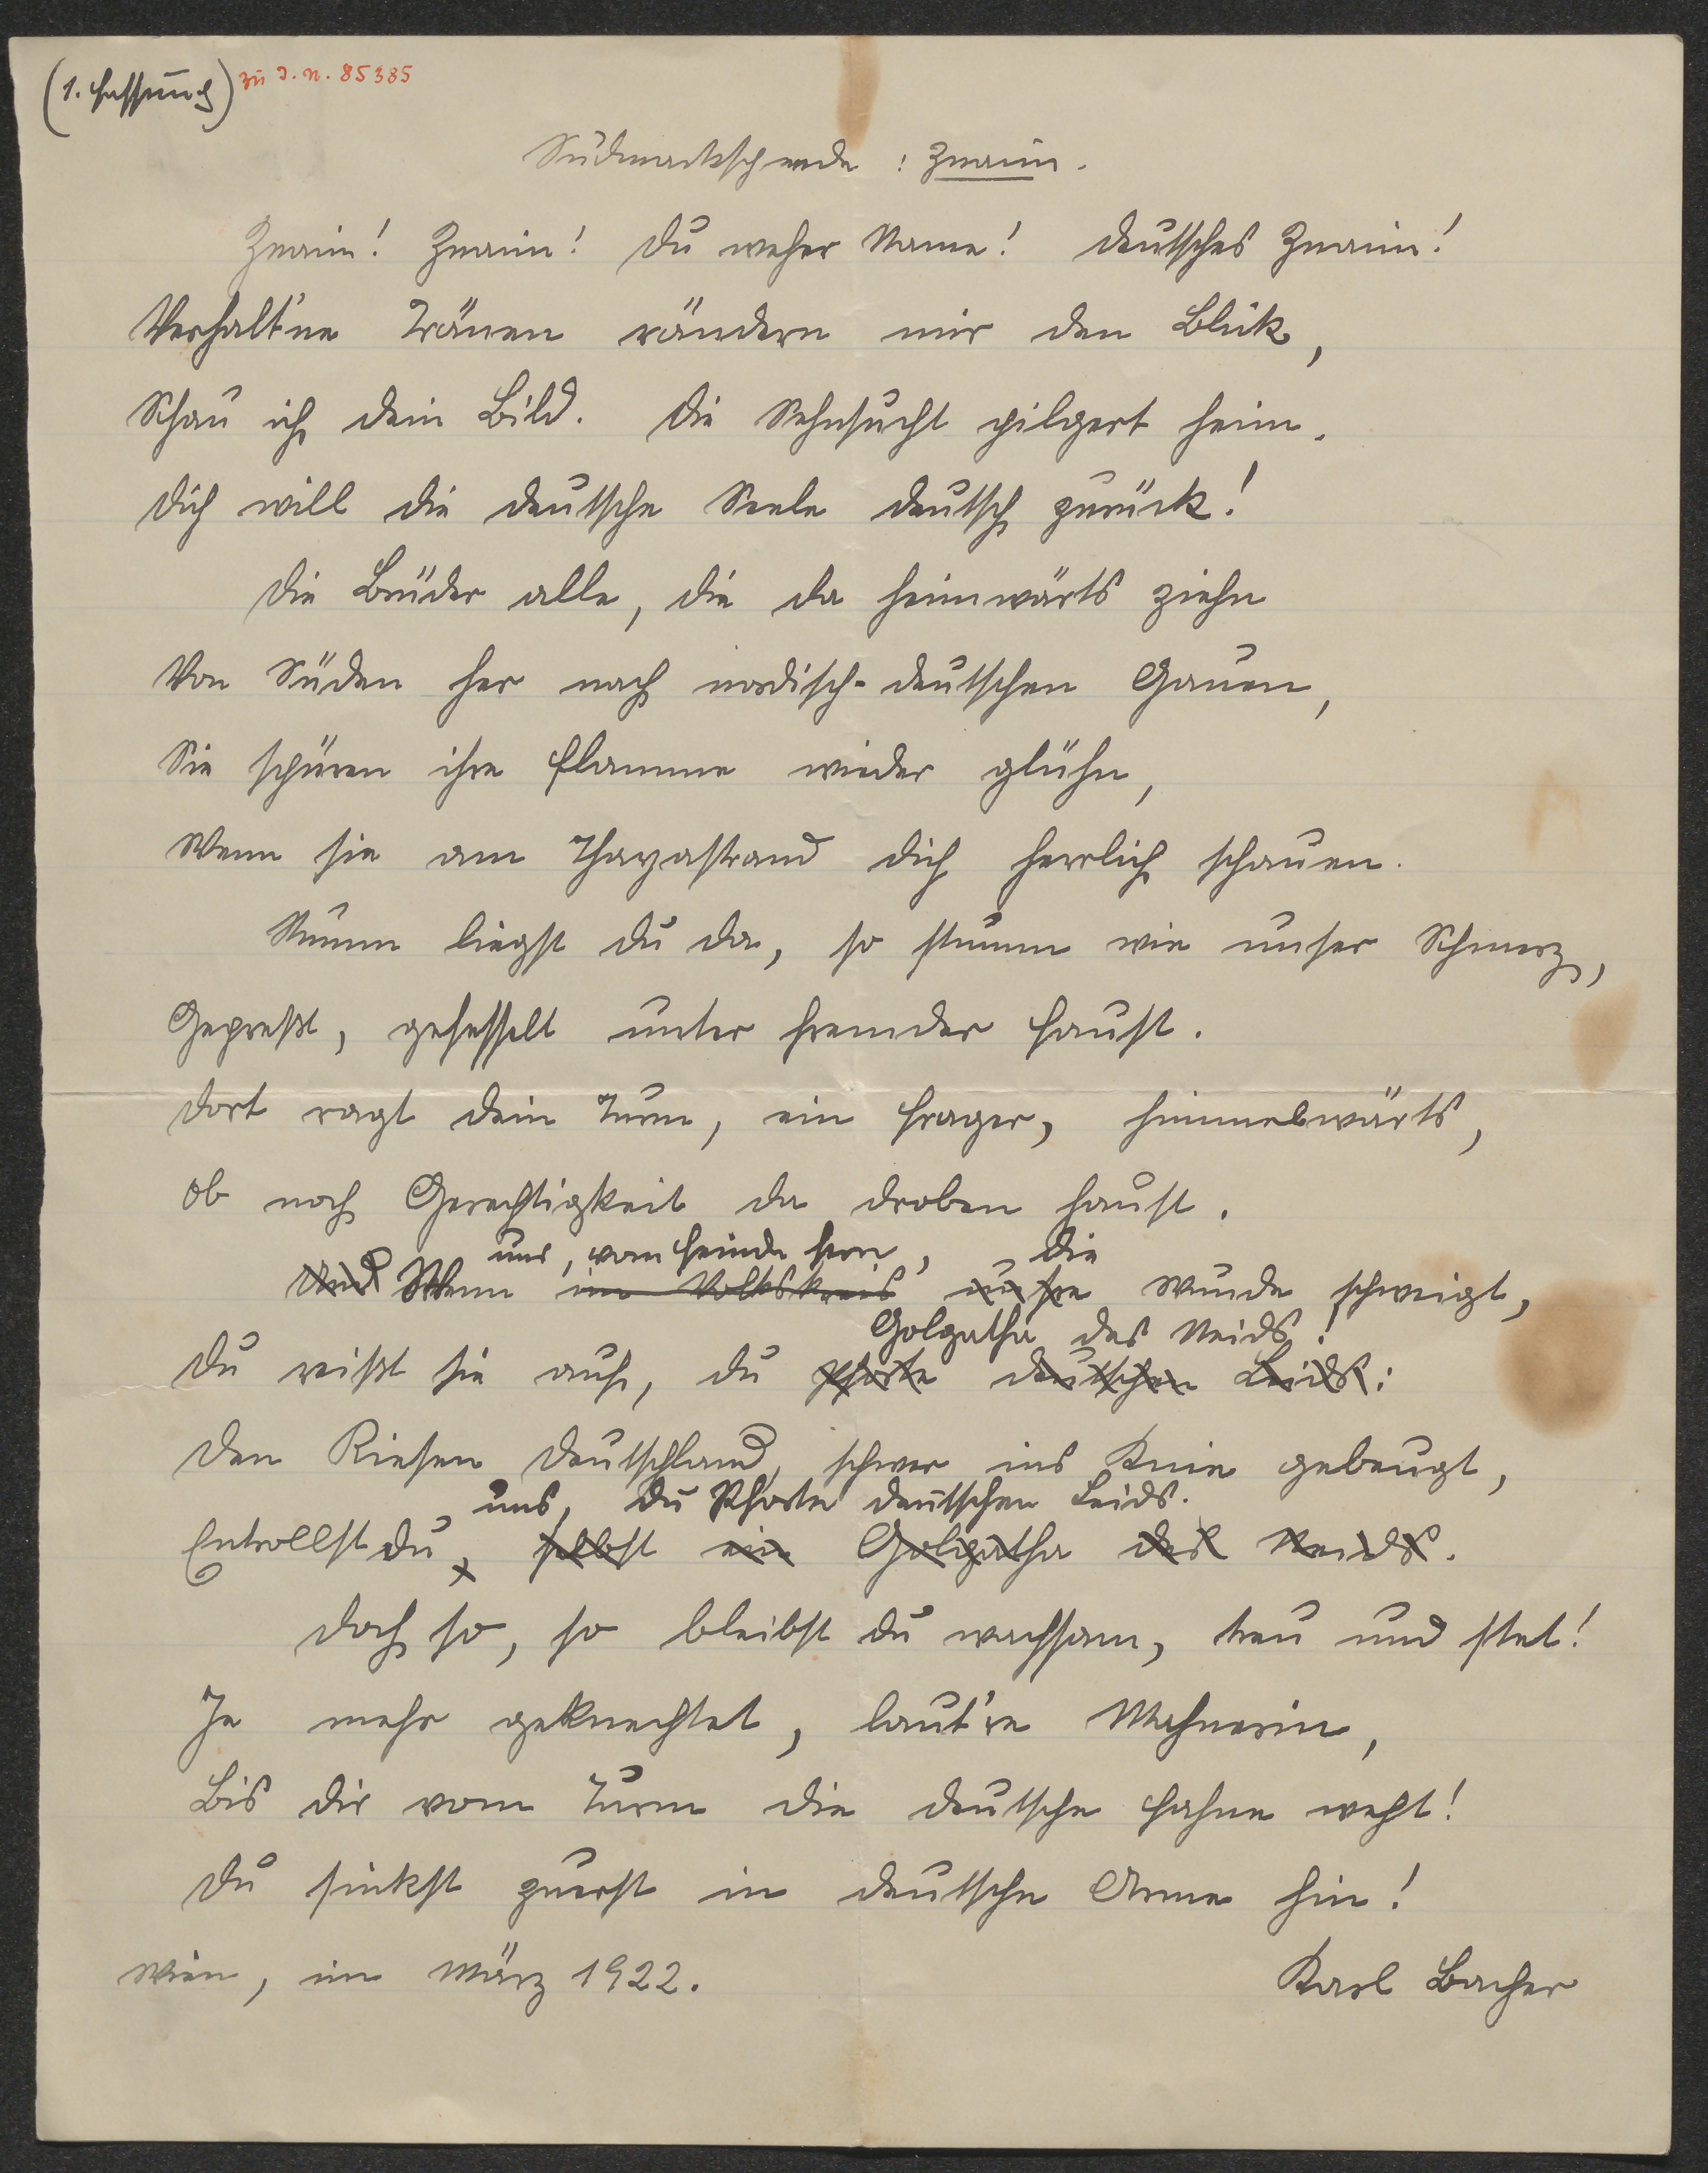 (1. Fassung) zu I. N. 85385
Südmarkspende : Znaim.
Znaim! Znaim! Du weher Name! Deutsches Znaim!
Verhalt'ne Tränen rändern mir den Blick,
Schau ich dein Bild. Die Sehnsucht pilgert heim.
Dich will die deutsche Seele deutsch zurück!
Die Brüder alle, die da heimwärts ziehn
Von Süden her nach nordisch-deutschen Gauen,
Sie spüren ihre Flamme wieder glühn,
Wenn sie am Thayastrand dich herrlich schauen.
Stumm liegst du da, so stumm wie unser Schmerz,
Gepreßt, gefesselt unter fremder Faust.
Dort ragt dein Turm, ein Frager, himmelwärts,
Ob noch Gerechtigkeit da droben haust.
uns, vom Feinde fern, die
Und Wenn im Volkskreis unsre Wunde schweigt,
Golgatha des Neids!
Du reißt sie auf, du Pforte deutschen Leids:
Den Riesen Deutschland, schwer ins Knie gebeugt,
uns, du Pforte deutschen Leids.
Entrollst du, selbst ein Golgatha des Neids.
Doch so, so bleibst du wachsam, treu und stet!
Je mehr geknechtet, laut're Mahnerin,
Bis dir vom Turm die deutsche Fahne weht!
Du sinkst zuerst in deutsche Arme hin!
Wien, im März 1922. Karl Bacher